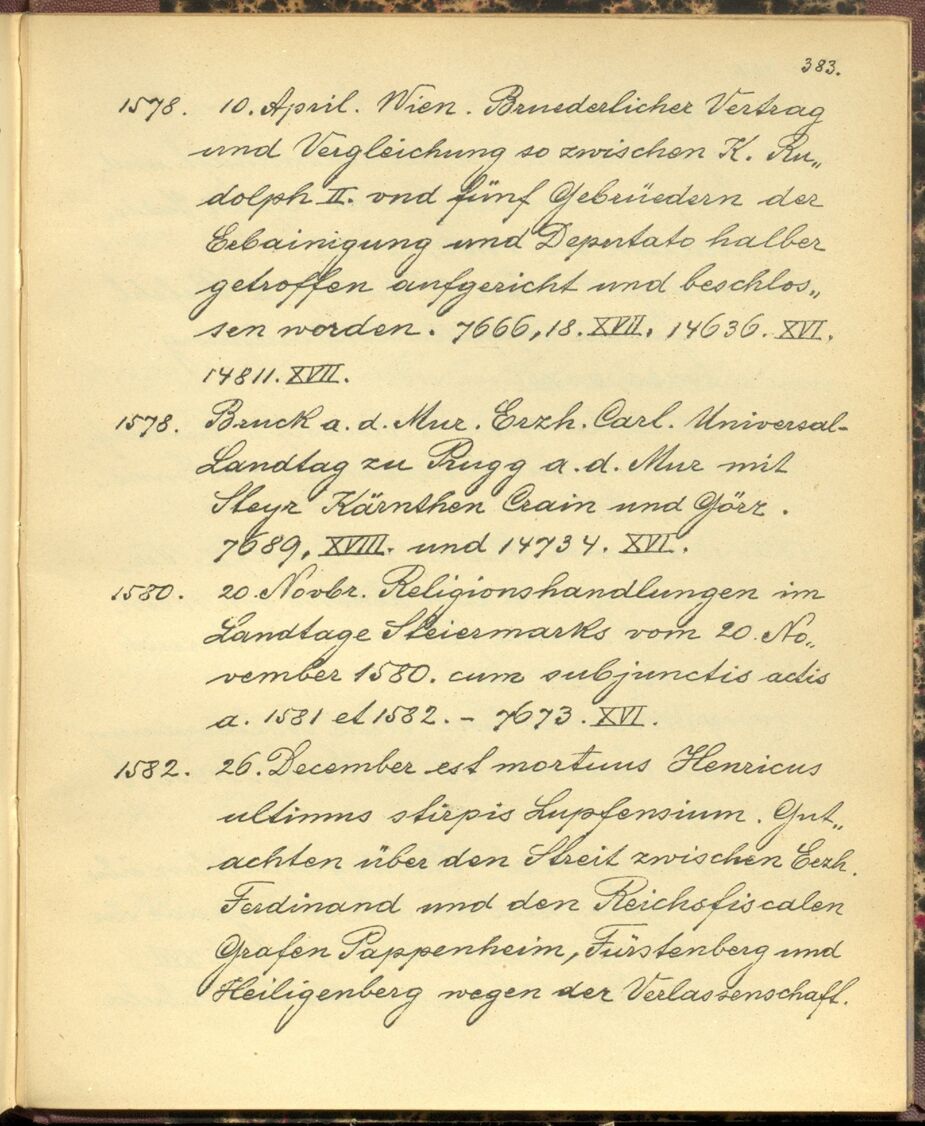 383.
1578. 10. April. Wien. Bruederlicher Vertrag
und Vergleichung so zwischen K. Ru„
dolph II. vnd fünf Gebrüedern der
Erbainigung und Deputato halber
getroffen aufgericht und beschlos„
sen worden. 7666,18. XVII. 14636. XVI.
14811. XVII.
1578. Bruck a. d. Mur. Erzh. Carl. Universal-
Landtag zu Prugg a. d. Mur mit
Steyr Kärnthen Crain und Görz.
7689, XVIII. und 14734. XVI.
1580. 20. Novbr. Religionshandlungen im
Landtage Steiermarks vom 20. No„
vember 1580. cum subjunctis actis
a. 1581 et 1582. - 7673. XVI.
1582. 26. December est mortuus Henricus
ultimus stirpis Lupfensium. Gut„
achten über den Streit zwischen Erzh.
Ferdinand und den Reichsfiscalen
Grafen Pappenheim, Fürstenberg und
Heiligenberg wegen der Verlassenschaft.